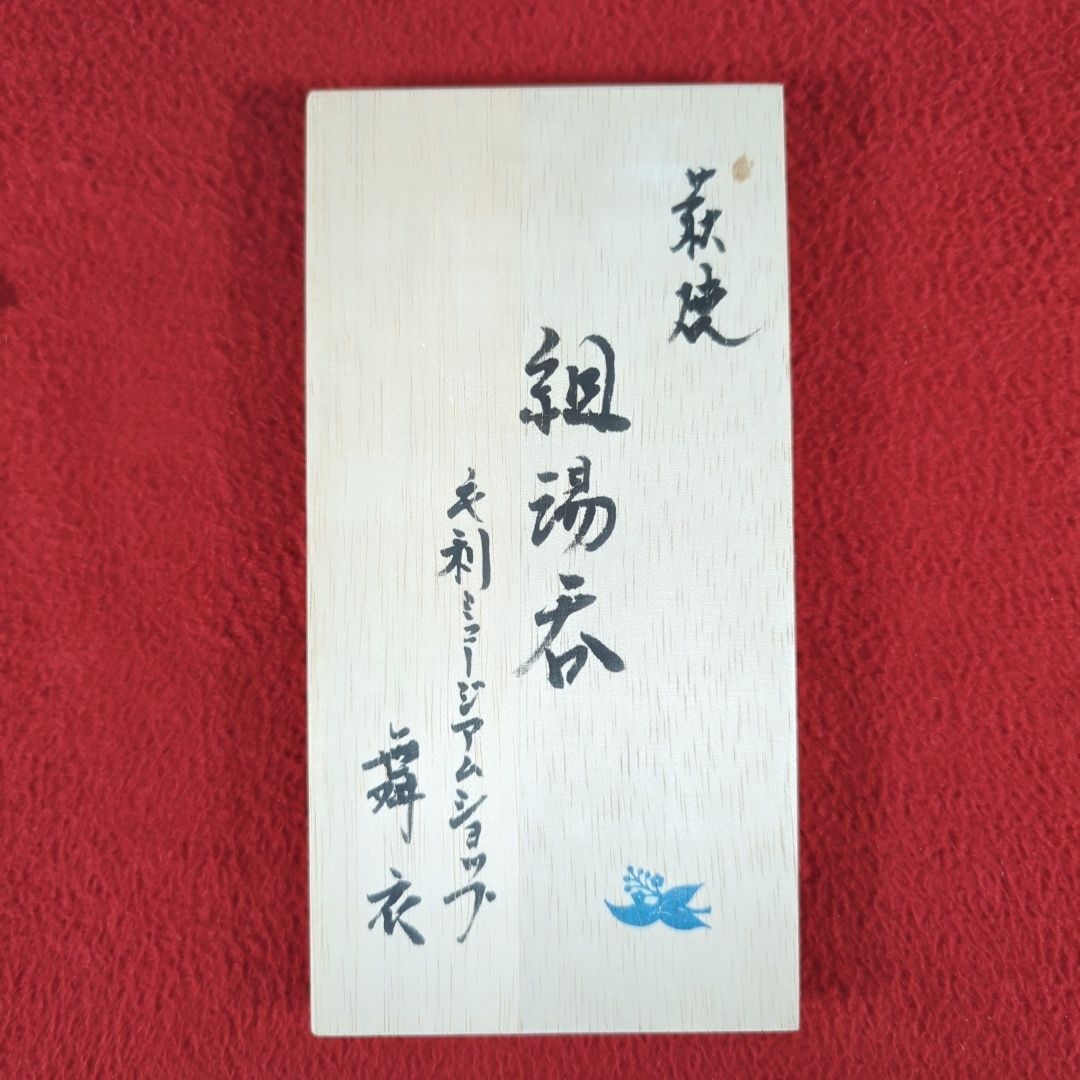 萩焼
組湯呑
毛利ミュージアムショップ
舞衣